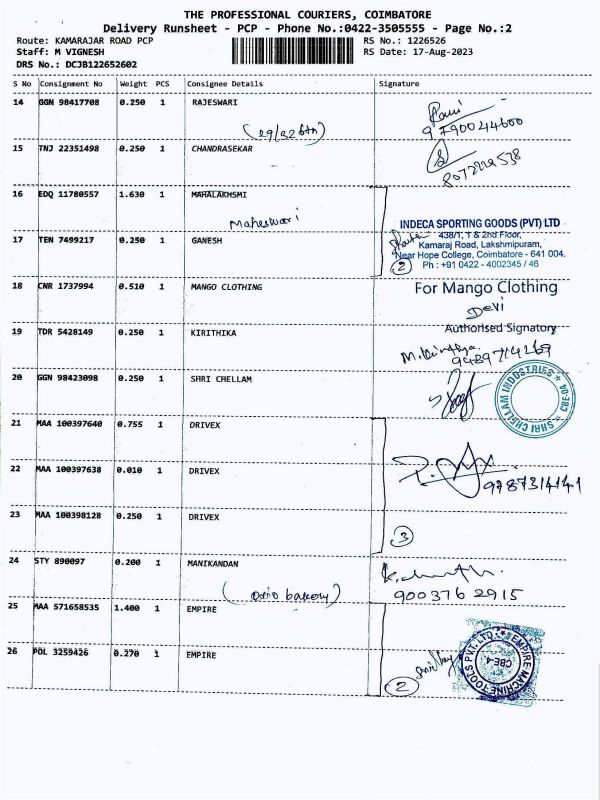 THE PROFESSIONAL COURIERS, COIMBATORE
Delivery Runsheet - PCP - Phone No.:0422-3505555 - Page No.:2
Route: KAMARAJAR ROAD PCP RS No.: 1226526
Staff: M VIGNESH RS Date: 17-Aug-2023
DRS No.: DCJB122652602
S No Consignment No Weight PCS Consignee Details Signature
14 GGN 98417708 0.250 1 RAJESWARI
9790044600
15 TNJ 22351498 0.250 1 CHANDRASEKAR
16 EDQ 11780557 1.630 1 MAHALAKHSMI
Maheswari
INDECA SPORTING GOODS (PVT) LTD
438/1, 1 & 2nd Floor,
17 TEN 7499217 0.250 1 GANESH
Kamaraj Road, Lakshmipuram,
Near Hope College, Coimbatore - 641 004.
2 Ph : +91 0422 - 4002345 / 46
18 CNR 1737994 0.510 1 MANGO CLOTHING
For Mango Clothing
Devi
Authorised Signatory
19 TDR 5428149 0.250 1 KIRITHIKA
9489714269
20 GGN 98423098 0.250 1 SHRI CHELLAM
SHRI CHELLAM INDUSTRIES
21 MAA 100397640 0.755 1 DRIVEX
22 MAA 100397638 0.010 1 DRIVEX
9787314141
23 MAA 100398128 0.250 1 DRIVEX
3
24 STY 890097 0.200 1 MANIKANDAN
bakery)
900376 2915
25 MAA 571658535 1.400 1 EMPIRE
26 POL 3259426 0.270 1 EMPIRE
EMPIRE MACHINE TOOLS PVT. LTD.
CBE-4
2